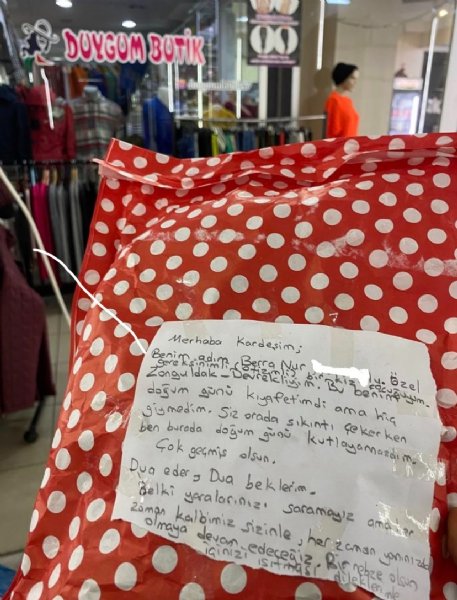 DUYGUM BUTİK
Merhaba Kardeşim;
Benim adım Berra Nur
özel
gereksinimli
bir kız çocuğuyum.
Zonguldak - Devrekliyim. Bu benim
doğum günü kıyafetimdi ama hiç
giymedim. Siz orada sıkıntı çekerken
ben burada doğum günü kutlayamazdım.
Çok geçmiş olsun.
Dua eder, Dua beklerim.
Belki yaralarınızı saramayız ama her
zaman kalbimiz sizinle, her zaman yanınızda
olmaya devam edeceğiz. Bir nebze olsun
içinizi ısıtması dileklerimle